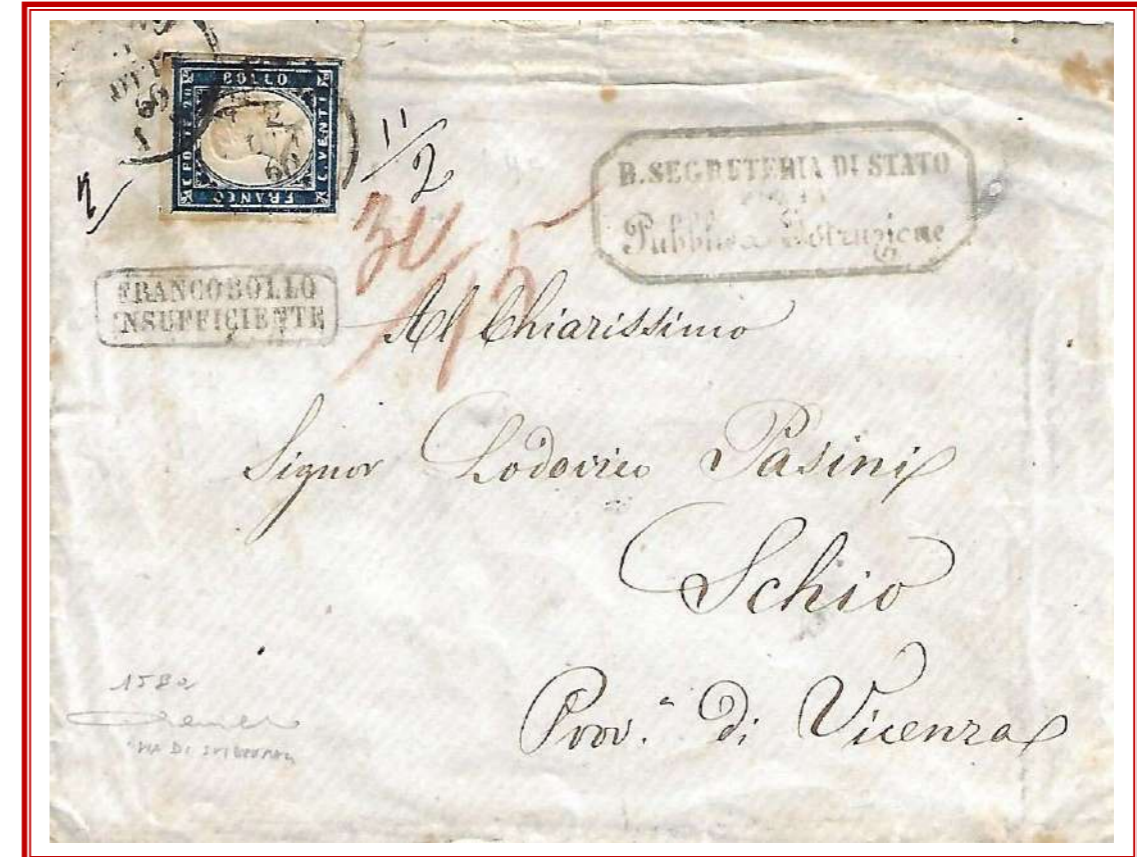 BOLLO
C. POSTE 20
C. VENTI
FRANCO
60
2
1 1/2
30
15
R. SEGRETERIA DI STATO
Pubblica Istruzione
FRANCOBOLLO
INSUFFICIENTE
Al Chiarissimo
Signor Lodovico Pasini
Schio
Prov.ª di Vicenza